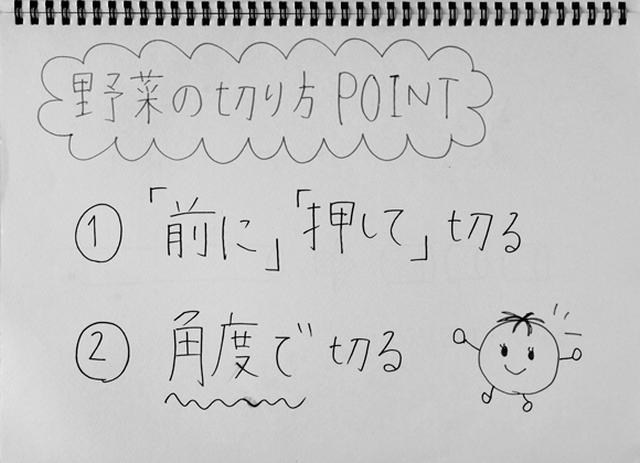 野菜の切り方POINT
① 「前に」「押して」切る
② 角度で切る